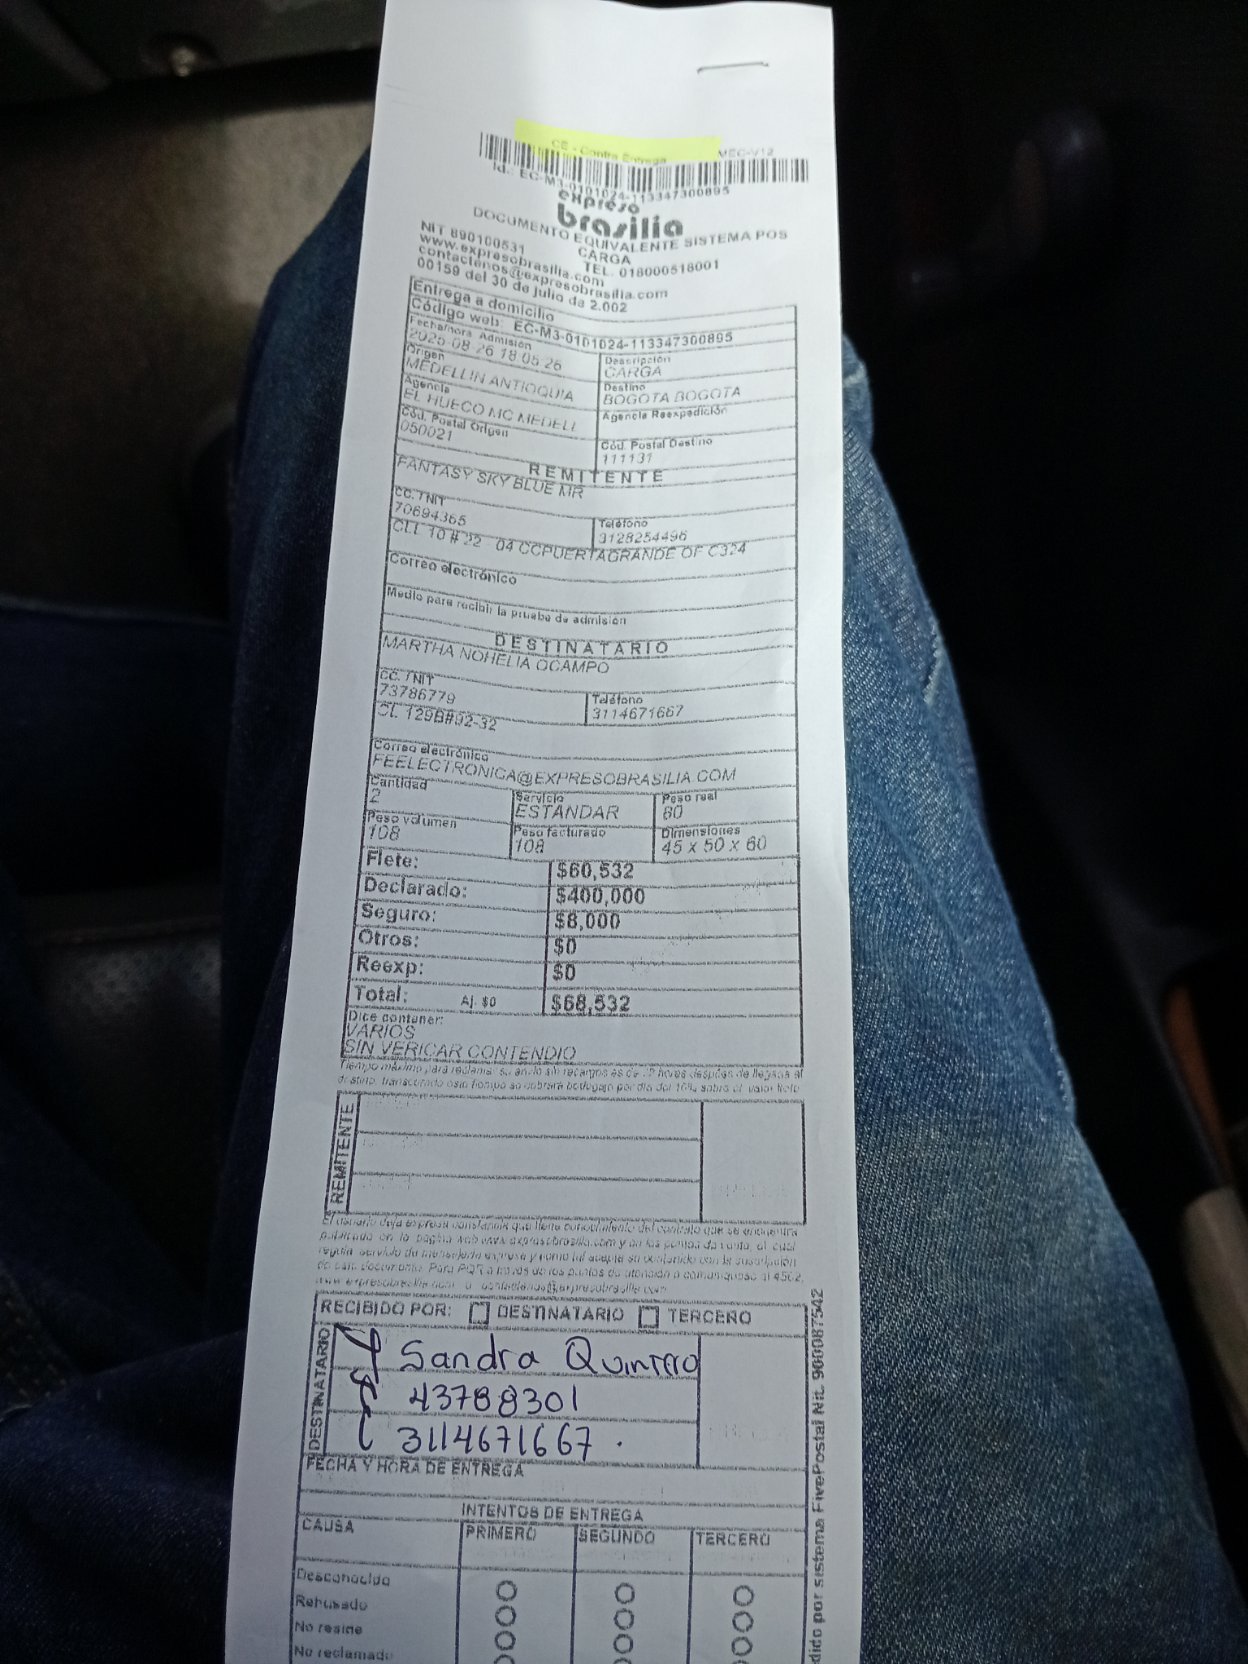 CE - Contra Entrega
MEC-V12
Id.: EC-M3-0101024-113347300895
expreso
brasilia
DOCUMENTO EQUIVALENTE SISTEMA POS
CARGA
NIT 890100531
TEL. 018000518001
www.expresobrasilia.com
contactenos@expresobrasilia.com
00159 del 30 de julio de 2.002
Entrega a domicilio
Código web: EC-M3-0101024-113347300895
Fecha/hora Admisión
2025-08-26 18:05:26
Descripción
CARGA
Origen
MEDELLIN ANTIOQUIA
Destino
BOGOTA BOGOTA
Agencia
EL HUECO MC MEDELL
Agencia Reexpedición
Cód. Postal Origen
050021
Cód. Postal Destino
111131
REMITENTE
FANTASY SKY BLUE MR
CC. / NIT
70694365
Teléfono
3128254496
CLL 10 # 22 - 04 CCPUERTAGRANDE OF C324
Correo electrónico
Medio para recibir la prueba de admisión
DESTINATARIO
MARTHA NOHELIA OCAMPO
CC. / NIT
73786779
Teléfono
3114671667
CL 129B#92-32
Correo electrónico
FEELECTRONICA@EXPRESOBRASILIA.COM
Cantidad
2
Servicio
ESTÁNDAR
Peso real
80
Peso volumen
108
Peso facturado
108
Dimensiones
45 x 50 x 60
Flete: $60,532
Declarado: $400,000
Seguro: $8,000
Otros: $0
Reexp: $0
Total: Aj. $0 $68,532
Dice contener:
VARIOS
SIN VERICAR CONTENDIO
Tiempo máximo para reclamar su envío sin recargos es de horas después de llegada al
destino, transcurrido este tiempo se cobrará bodegaje por día del 10% sobre el valor flete
REMITENTE
El usuario deja expresa constancia que tiene conocimiento del contrato que se encuentra
publicado en la página web www.expresobrasilia.com y en los puntos de venta, el cual
regula servicio de mensajería expresa y como tal acepta su contenido con la suscripción
de este documento. Para PQR a través de los puntos de atención o comuníquese al 4562,
www.expresobrasilia.com o contactenos@expresobrasilia.com
RECIBIDO POR: DESTINATARIO TERCERO
DESTINATARIO
Sandra Quintero
43788301
3114671667.
FECHA Y HORA DE ENTREGA
INTENTOS DE ENTREGA
CAUSA PRIMERO SEGUNDO TERCERO
Desconocido
Rehusado
No reside
No reclamado
dido por sistema FivePostal Nit. 900087542